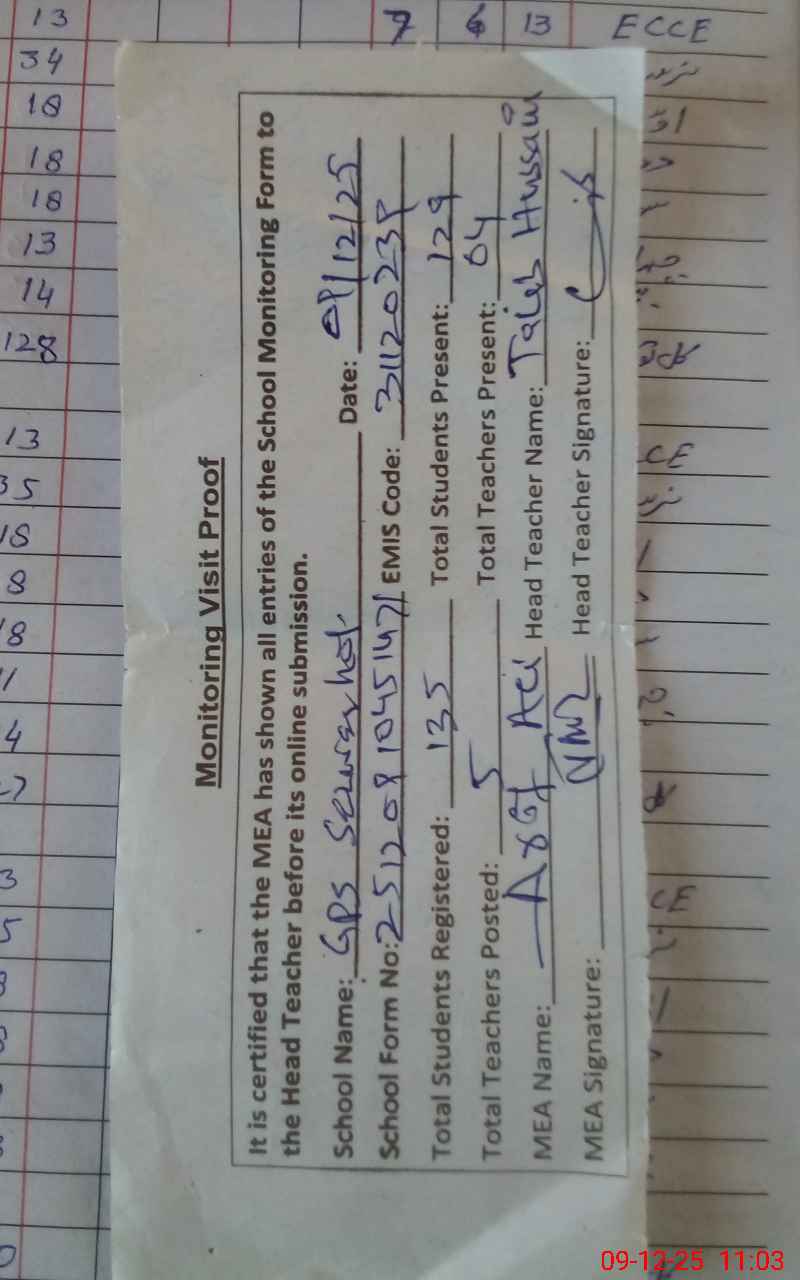 Monitoring Visit Proof
It is certified that the MEA has shown all entries of the School Monitoring Form to
the Head Teacher before its online submission.
School Name: GPS Date: 09/12/25
School Form No: 25120910451471 EMIS Code: 31120239
Total Students Registered: 135 Total Students Present: 129
Total Teachers Posted: 5 Total Teachers Present: 04
MEA Name: Asif Ali Head Teacher Name: Talib Hussain
MEA Signature: Head Teacher Signature:
7 6 13 ECCE
13
34
18
18
18
13
14
128
13
35
18
8
18
11
4
3
CE
CE
09-12-25 11:03